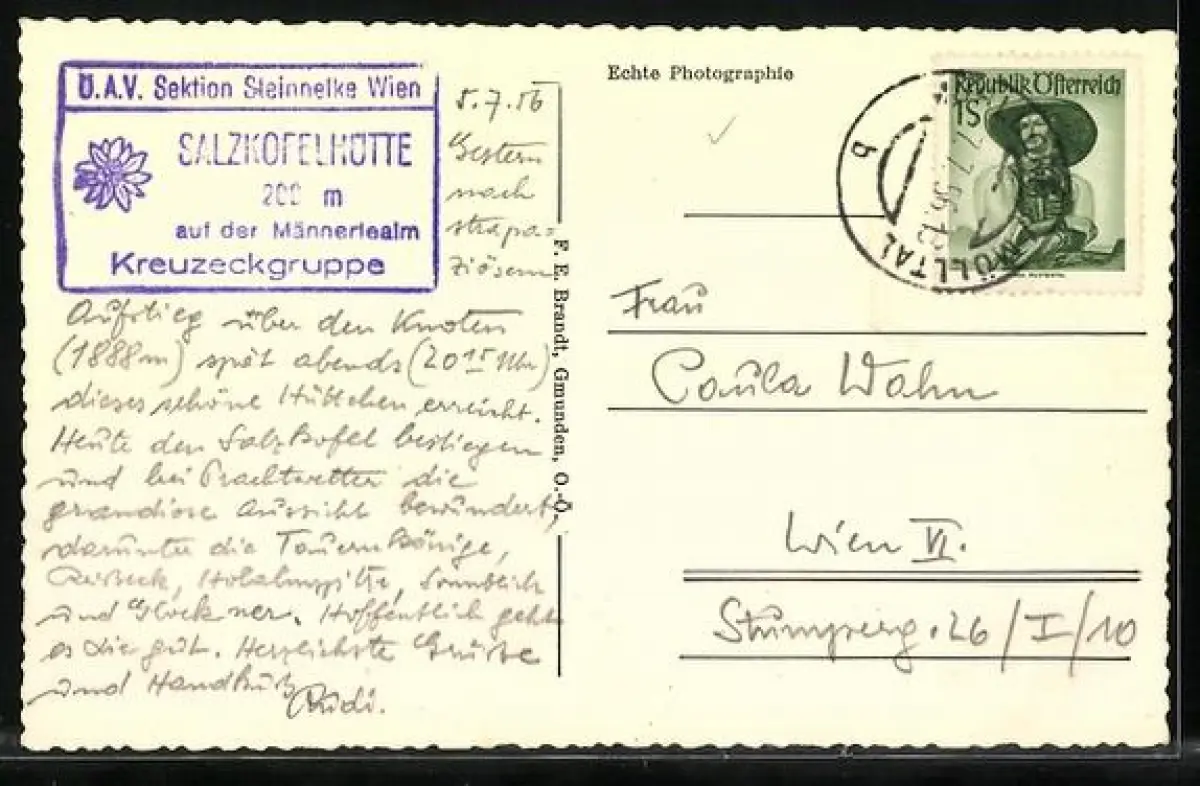 Ö.A.V. Sektion Steinnelke Wien
SALZKOFELHÜTTE
200 m
auf der Männertealm
Kreuzeckgruppe
5.7.56
Gestern
nach
strapa=
ziösem
Aufstieg über den Knoten
(1888m) spät abends (20 15 Uhr)
dieses schöne Hüttchen erreicht.
Heute den Salzkofel bestiegen
und bei Prachtwetter die
grandiose Aussicht bewundert,
darunter die Tauernkönige,
Reisseck, Hochalmspitze, Sonnblick
und Glockner. Hoffentlich geht
es Dir gut. Herzlichste Grüsse
und Handkuß
Rudi.
F. E. Brandt, Gmunden, O.-Ö.
Echte Photographie
Republik Österreich
1S
MÖLLTAL
b
Frau
Paula Wahn
Wien VI.
Stumperg. 26/I/10